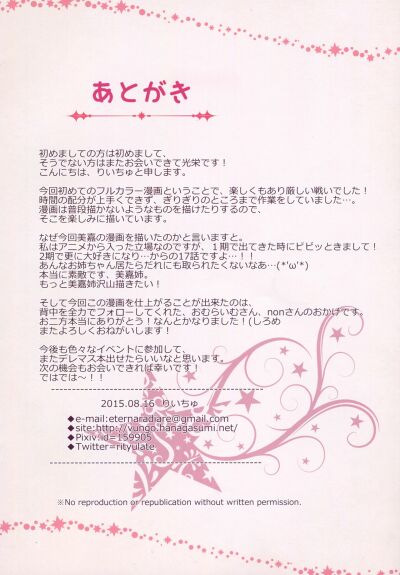 あとがき
初めましての方は初めまして、
そうでない方はまたお会いできて光栄です！
こんにちは、りいちゅと申します。
今回初めてのフルカラー漫画ということで、楽しくもあり厳しい戦いでした！
時間の配分が上手くできず、ぎりぎりのところまで作業をしていました…。
漫画は普段描かないようなものを描けたりするので、
そこを楽しみに描いています。
なぜ今回美嘉の漫画を描いたのかと言いますと。
私はアニメから入った立場なのですが、１期で出てきた時にビビッときまして！
2期で更に大好きになり…からの17話ですよ…！！
あんなお姉ちゃん居たらだれにも取られたくないなあ…(*'ω'*)
本当に素敵です、美嘉姉。
もっと美嘉姉沢山描きたい！
そして今回この漫画を仕上がることが出来たのは、
背中を全力でフォローしてくれた、おむらいむさん、nonさんのおかげです。
お二方本当にありがとう！なんとかなりました！(しろめ
またよろしくおねがいします！
今後も色々なイベントに参加して、
またデレマス本出せたらいいなと思います。
次の機会もお会いできれば幸いです！
ではでは～！！
2015.08.16 りいちゅ
◆e-mail:eternaradiare@gmail.com
◆site:http://vungo.hanagasumi.net/
◆Pixiv:id=159905
◆Twitter=rityulate
※No reproduction or republication without written permission.